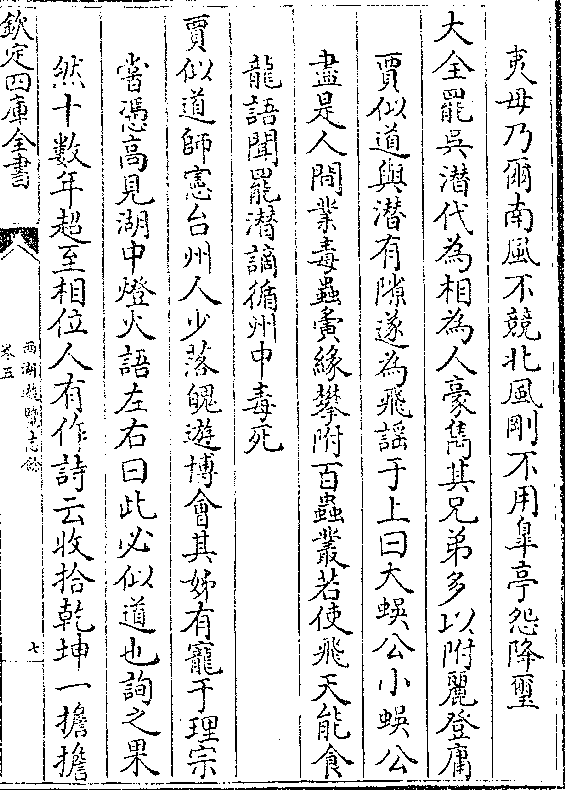 夷毋乃爾南風不競北風剛不用臯亭怨降璽
大全罷吳潜代為相為人豪雋其兄弟多以附麗登庸
賈似道與潜有隙遂為飛謡于上曰大蜈公小蜈公
盡是人間業毒蟲夤緣攀附百蟲叢若使飛天能食
龍語聞罷潜謫循州中毒死
賈似道師憲台州人少落魄遊博會其姊有寵于理宗
嘗憑高見湖中燈火語左右曰此必似道也詢之果
然十數年超至相位人有作詩云收拾乾坤一擔擔
欽定四庫全書
西湖遊覽志餘
卷五
七